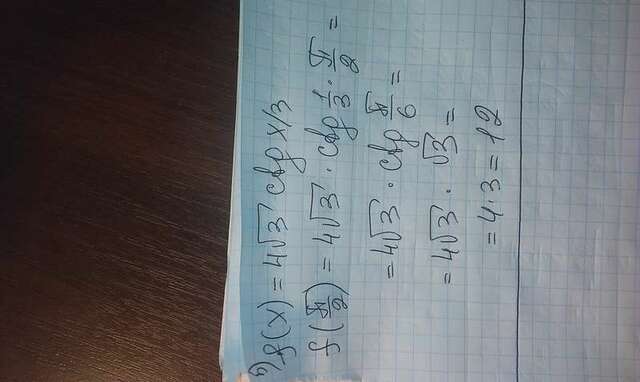 б) f(x) = 4√3 ctg x/3
f(π/2) = 4√3 · ctg 1/3 · π/2 =
= 4√3 · ctg π/6 =
= 4√3 · √3 =
= 4·3 = 12